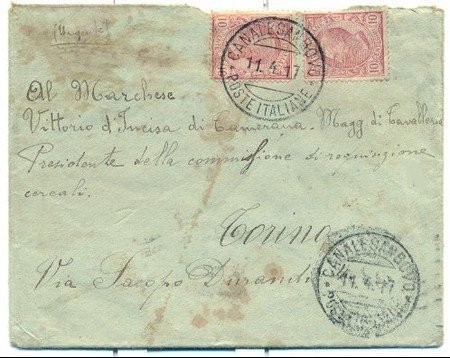 (Urgente)
10 10 10
CANALESANBOVO
11.4.17
POSTE ITALIANE
Al Marchese
Vittorio d'Incisa di Camerana. Magg di Cavalleria
Presidente della commissione di requisizione
cereali.
Torino
Via Jacopo Durandi
CANALESANBOVO
11.4.17
POSTE ITALIANE